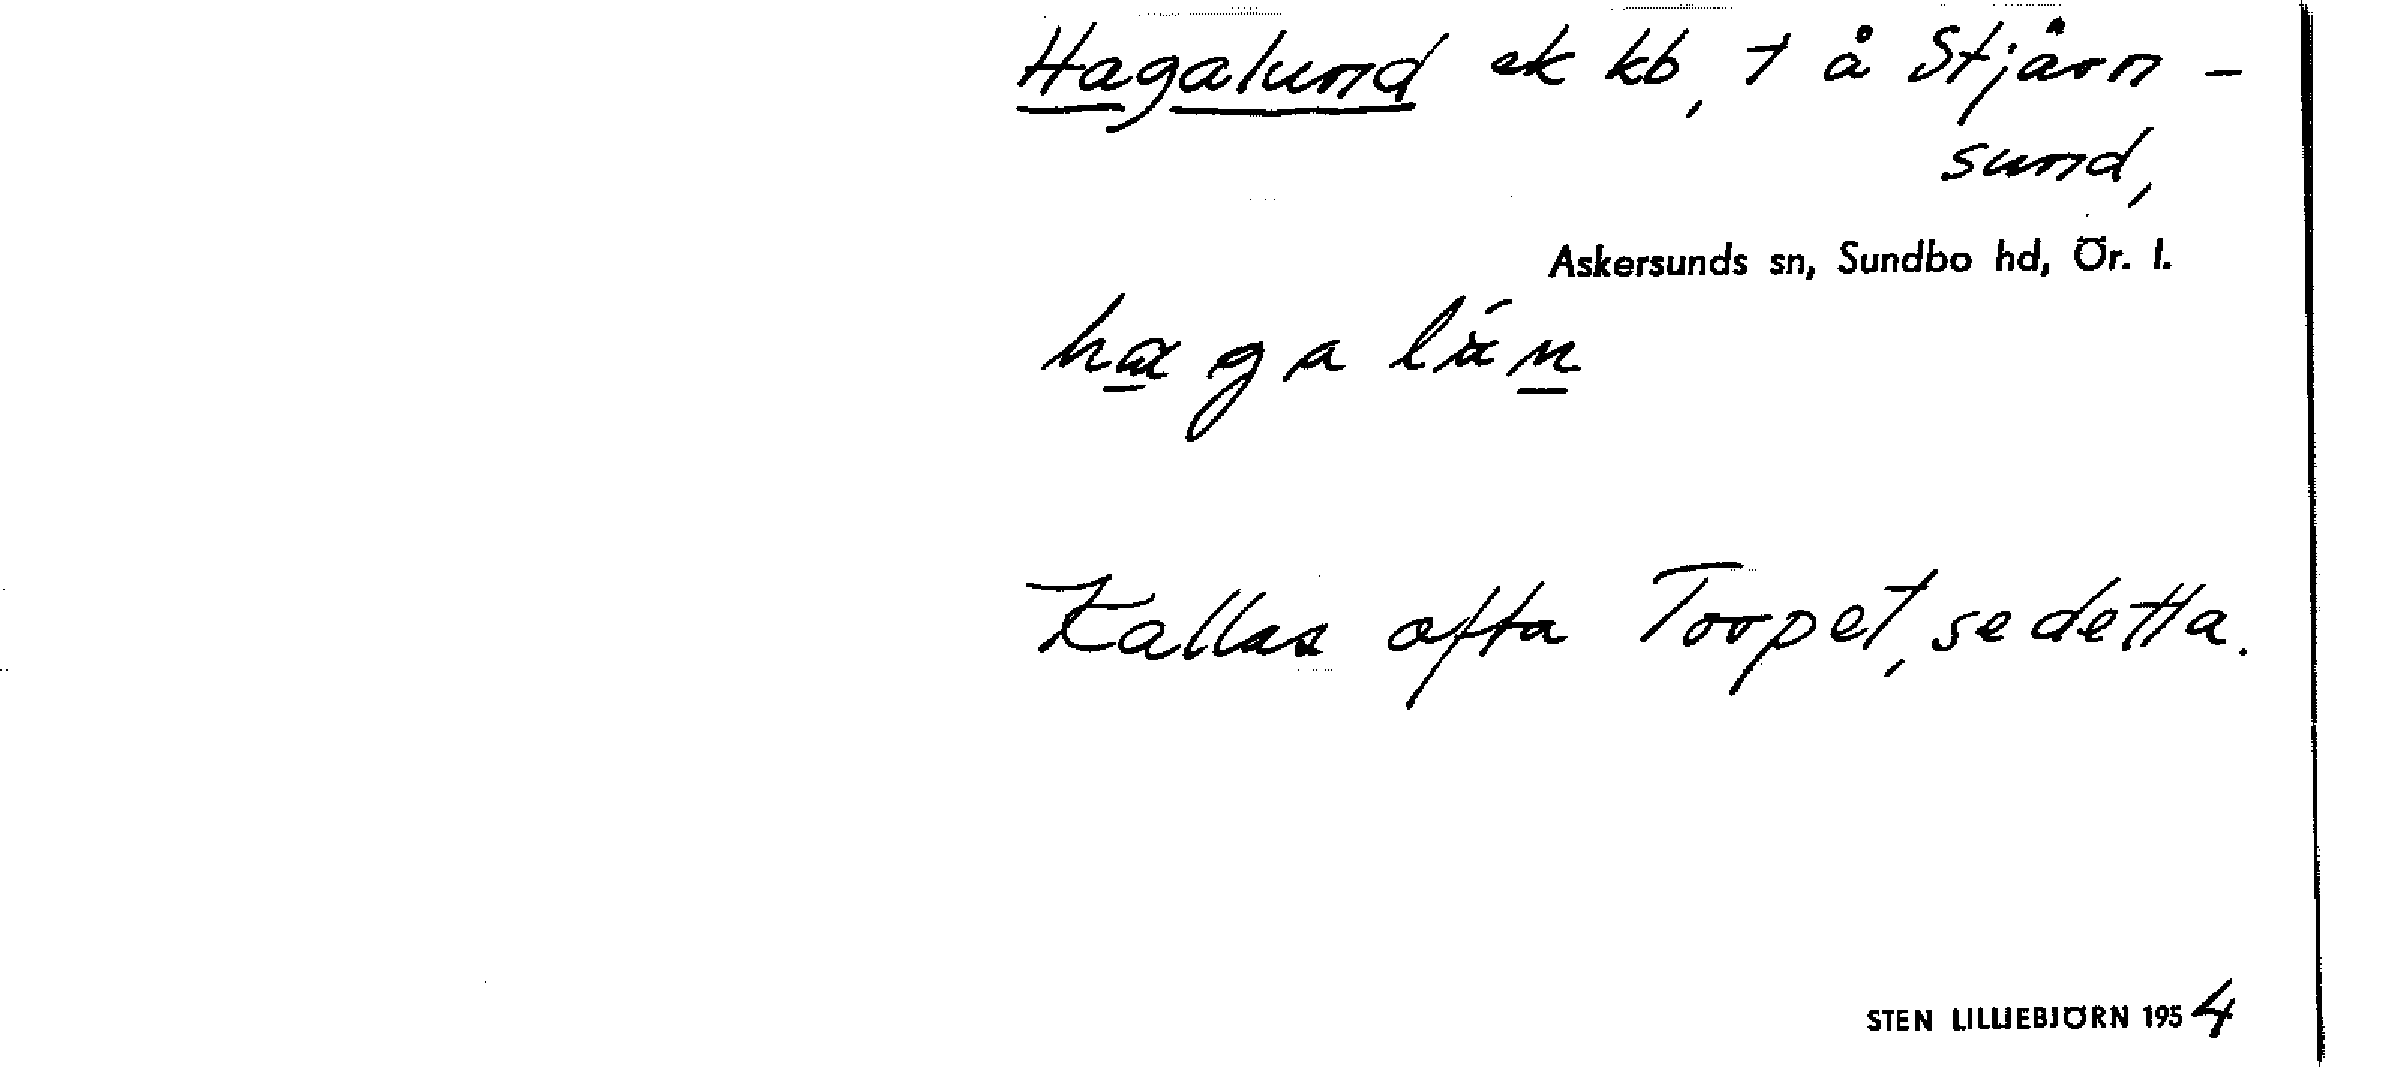 Hagalund ek kb, t å Stjärn-
sund,
Askersunds sn, Sundbo hd, Ör. l.
Kallas ofta Torpet, se detta.
STEN LILLIEBJÖRN 1954